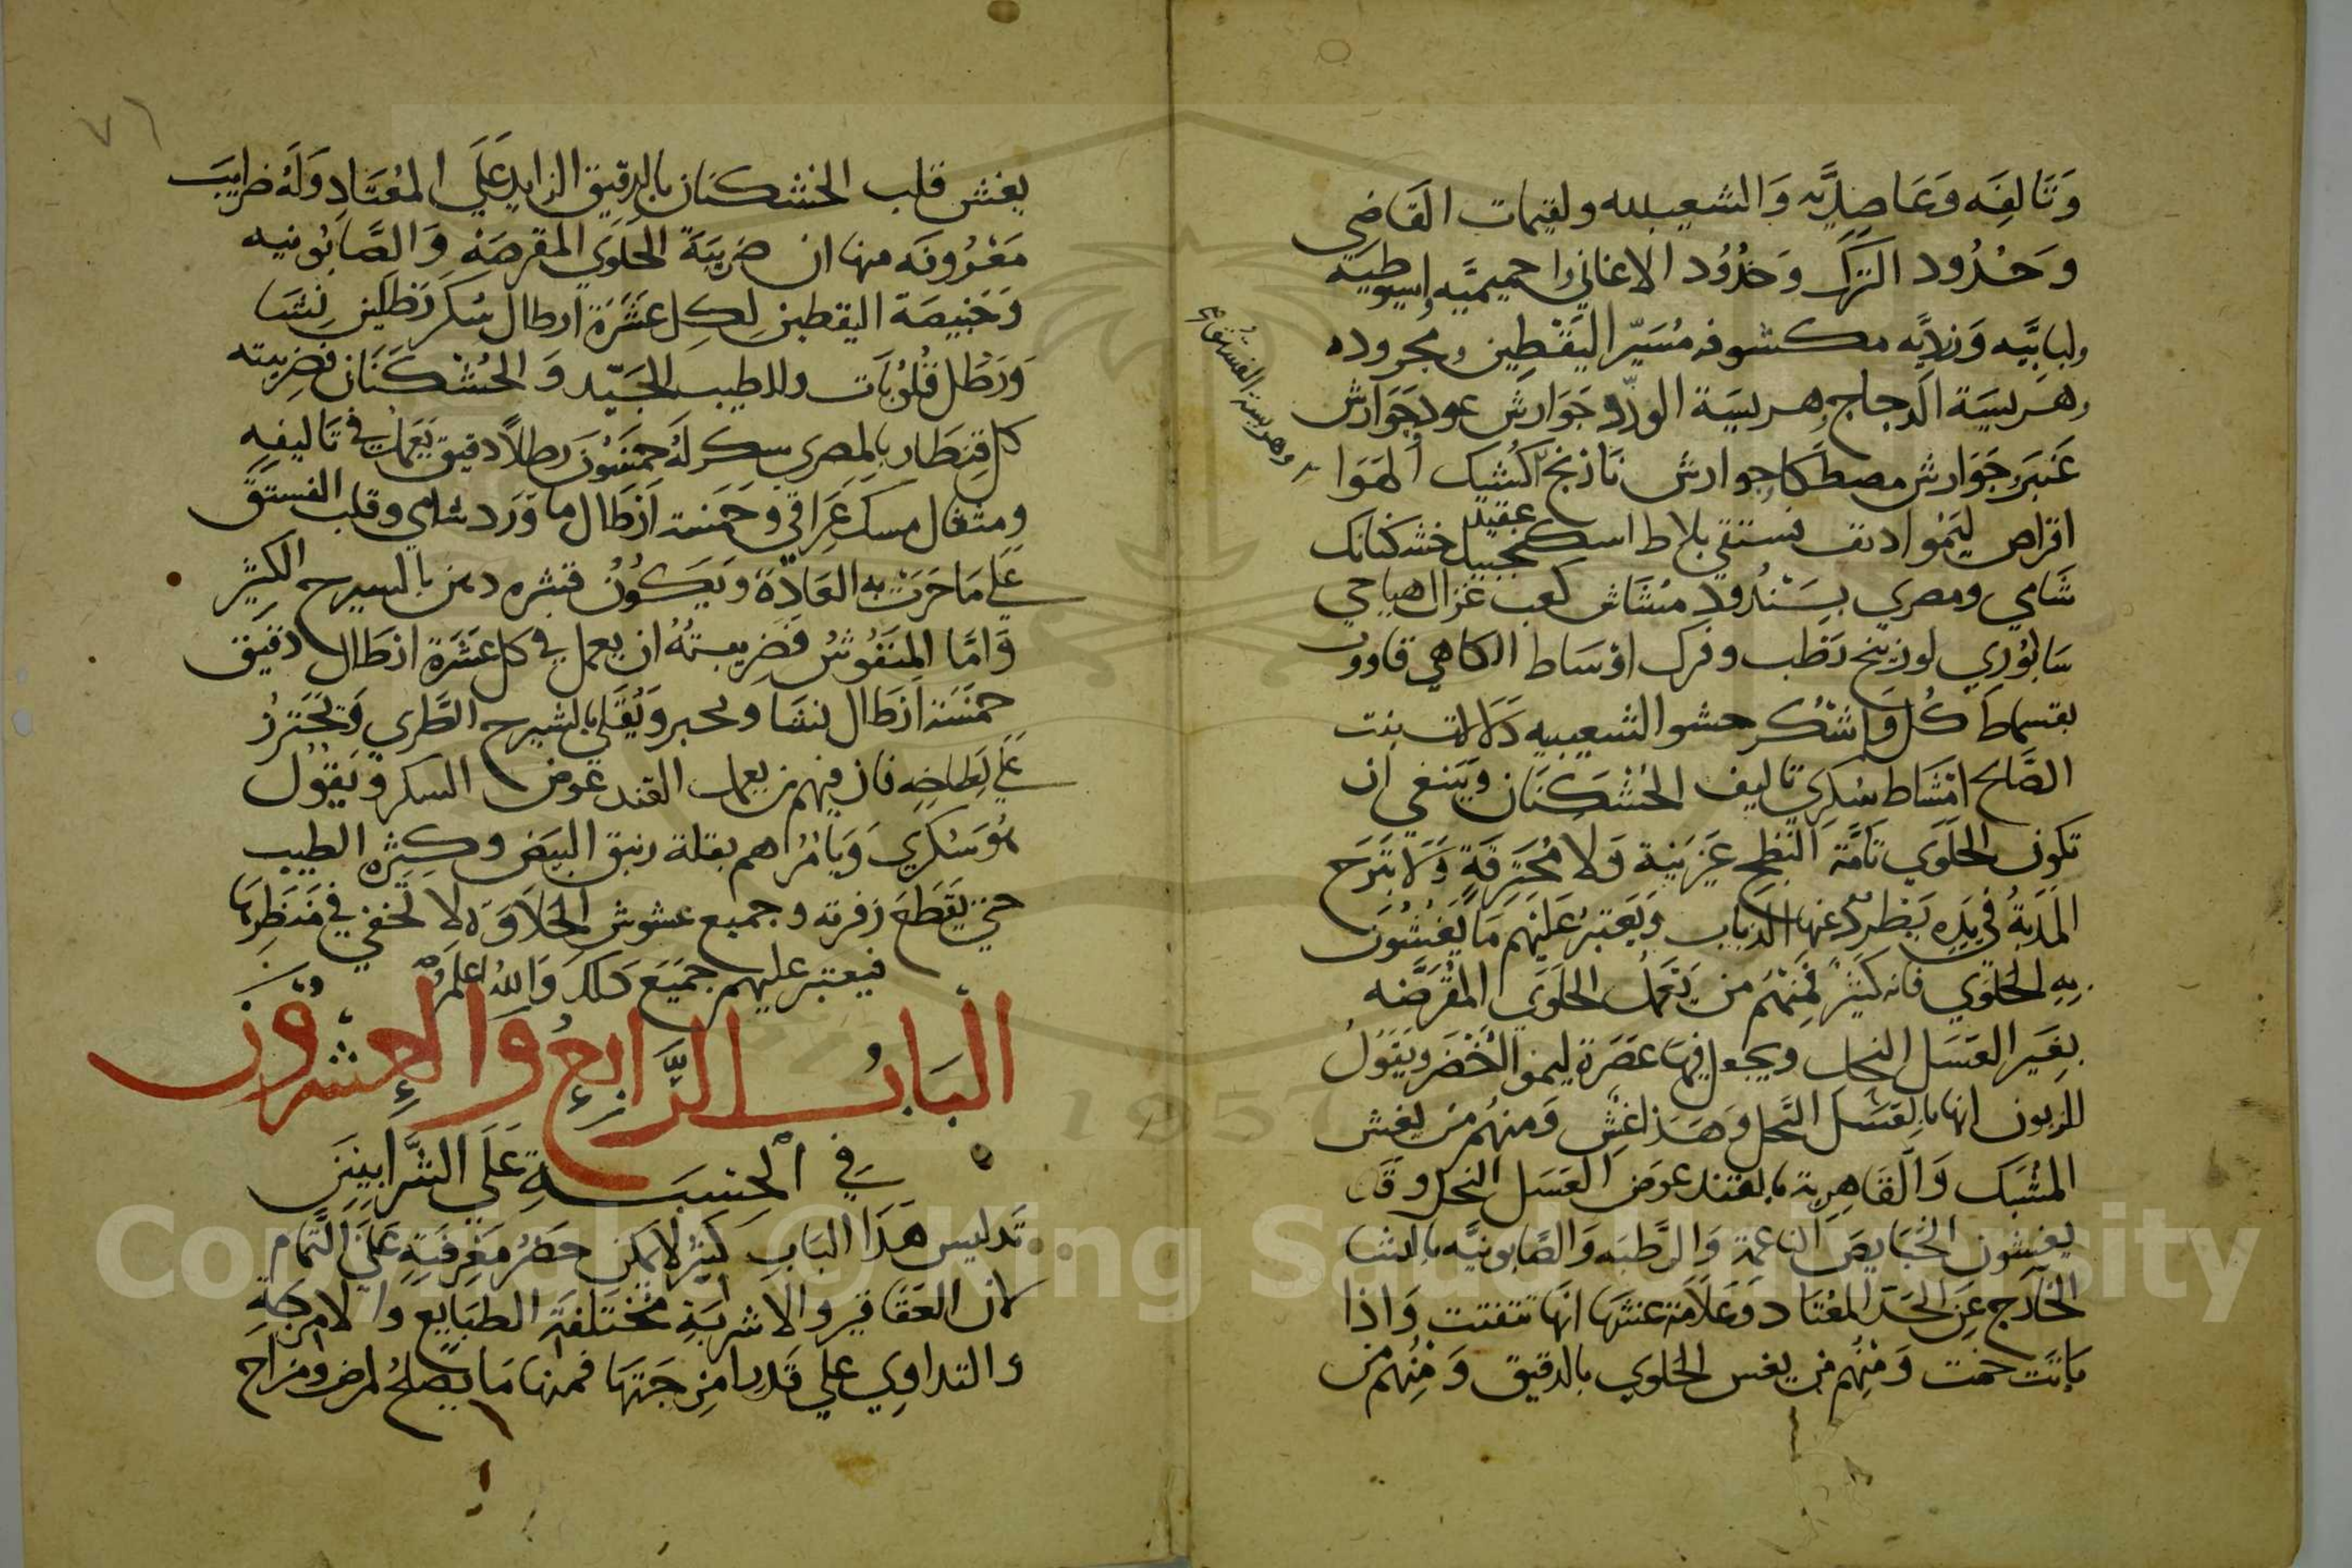 وَتَالِفَه وَعَاصِدِيَّه وَالشعيبيه ولقيمات القَاضِي
وَخُدُود التركَ وَخُدُوُد الاغاني واخميميَّه واسيوطيه
ولبابيَّه وَزلابيَّه مكشوفه مُسَيّر اليَقْطِين ومجروده
وهَريسَة الدجاج وهريسَة الورّد وجَوَارش عود جَوَارش
وهريسة الفستق صح
عَنبَر جَوَارش مصطكا جوارش نَارنج كُشيك الهَوَا
اقراص ليَمُوا دنف فستقي بلاط اسكنجبيل خشكنانك
عقيد
شَامي ومصري بِسَنْدُود مشَاش كعب غزال هياجي
سَابُوري لوزينج رَطب وفرك اوْسَاط الكاهي قاووت
بقسماط كُل وَاشْكُر حشو الشعيبيه دَلالات بنت
الصَّالح امْشَاط سُكرِي تاليف الخُشْكنَان وَينبغي ان
تكون الحَلوَي تَامَّة النضج غَيرنية وَلا مُحتَرقَةٍ وَلا تبَرَح
المَذَبَةُ في يَدِه يَطْردُ عنها الذباب وَيَعتبرُ عَلَيهم مَا يَغُشُّونَ
بِهِ الحَلوَي فانه كَثيرٌ فَمِنْهُم من يَعْمل الحَلوَي المقرَّضَه
بِغَير العَسَل النحل ويجعل فيها عصَرَة ليمو اخضَر وَيَقوُل
للزبون انها بالعَسَل النَّحل وَهَذا غِش وَمنهُم من يغش
المشَبك وَالقَاهِرية بالقند عوَض العَسَل النحل وقَد
يغشون الخَبَايصَ النَاعمة وَالرَّطبَه وَالصَّابونيَّه بالنشا
الخَارج عَن الحَد المعْتَاد وَعَلَامة غشهَا انهَا تتفتت وَاذا
بَاتَت خمت وَمنُهم من يغش الحَلوي بالدقيق وَمِنُهم من
٧٦
يغش قلب الخشكنان بالدقيق الزايد عَلَي المعُتَادِ وَلَهُ ضرايبَ
مَعرُوفَه منها ان ضَريبَةَ الحَلوَي المقرضَة وَالصَّابُونيه
وَخَبيصَة اليقطين لِكل عَشَرَة ارطال سُكر رَطلين نِشَا
وَرَطل قلُوبَات وللطيب الجَيّد وَالخُشْكنَان فضريبته
كل قِنطَار بالمصري سكر لَهُ خمسُونَ رطلاً دقيق يَعْمل في تَاليفه
ومثقال مسك عَراقي وخمسَة ارَطَال ما وَرَد شامي وقلب الفستق
عَلي مَا جَرَت به العَادَة وَيَكوُنُ قشره دهن بالسيرج الكثِيْر
وَامَّا المنَفُوشُ فَضَريبتُهُ ان يعمل في كل عَشَرَة ارطَال دَقيق
خمسَة ارَطَال نشَا وَيخبر وَيُقلَي بالشيرج الطَّري وَيَحتَرزُ
عَلَي بَطايحه فان فيهم من يعمل القند عوض السكر وَيَقوُل
هُوَ سُكرِي وَيَامُرُاهم بقلة ربيق البَيَض وَكثرة الطيب
حَتي يقطَع زفرته وجميع غشوش الحَلاوَة لا تخفي في مَنظَرِهَا
فيعتبر عليهم جَميَع ذَلك وَاللهُ اعَلَمُ
البَابُ الرَّابِعُ وَالعِشرُوُن
فيِ الحِسبَةِ عَلَي الشَّرَابيِينَ
تَدليس هَذَا البَابِ كَثيرٌ لا يمكن حَصرُ مَعْرِفَتِهِ عَلَي التَّمام
لان العَقَاقير والاشربَةِ مختَلفَة الطبَايع والامْزِجَةِ
والتداوِي علي قَدرِ امزجَتهَا فمنها مَا يَصلحُ لمرض ومزاج
Copyright © King Saud University
1957